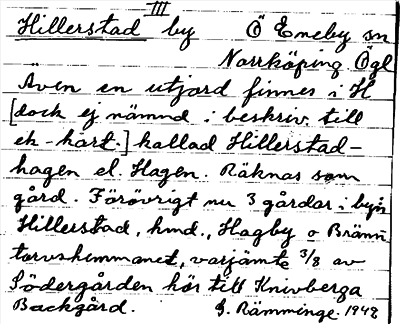 III
Hillerstad by Ö Eneby sn
Norrköping Ögl
Även en utjord finnes i H
[dock ej nämnd i beskriv. till
ek-kart.] kallad Hillerstad-
hagen el. Hagen. Räknas som
gård. Förövrigt nu 3 gårdar i byn
Hillerstad, kmd., Hagby o Bränn
torvshemmanet, varjämte 3/8 av
Södergården hör till Knivberga
Backgård. G. Rämminge 1942